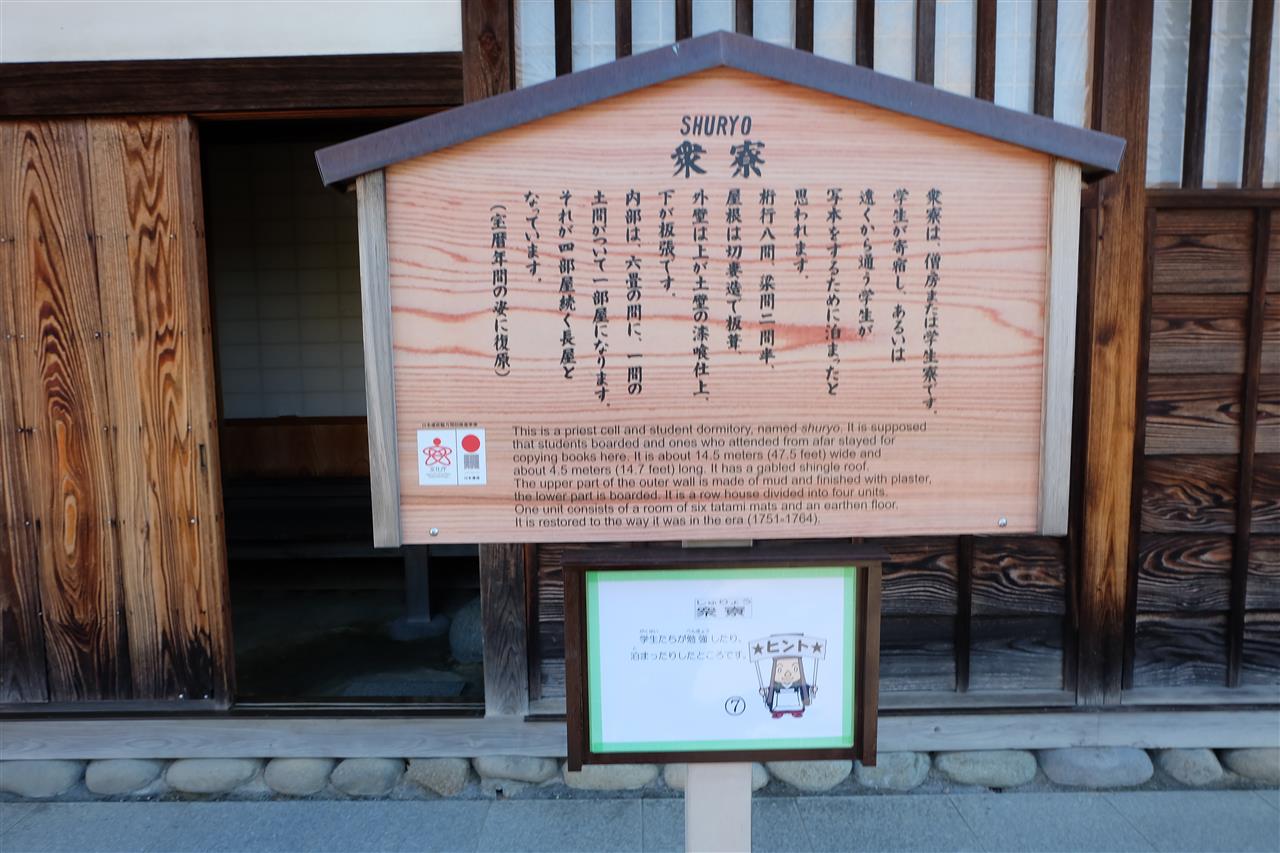 SHURYO
衆寮
衆寮は、僧房または学生寮です。
学生が寄宿し、あるいは
遠くから通う学生が
写本をするために泊まったと
思われます。
桁行八間、梁間二間半、
屋根は切妻造で板葺、
外壁は上が土壁の漆喰仕上、
下が板張です。
内部は、六畳の間に、一間の
土間がついて一部屋になります。
それが四部屋続く長屋と
なっています。
(宝暦年間の姿に復原)
This is a priest cell and student dormitory, named shuryo. It is supposed
that students boarded and ones who attended from afar stayed for
copying books here. It is about 14.5 meters (47.5 feet) wide and
about 4.5 meters (14.7 feet) long. It has a gabled shingle roof.
The upper part of the outer wall is made of mud and finished with plaster,
the lower part is boarded. It is a row house divided into four units.
One unit consists of a room of six tatami mats and an earthen floor.
It is restored to the way it was in the era (1751-1764).
文化庁
日本遺産
しゅりょう
衆寮
学生たちが勉強したり、
泊まったりしたところです。
★ヒント★
⑦